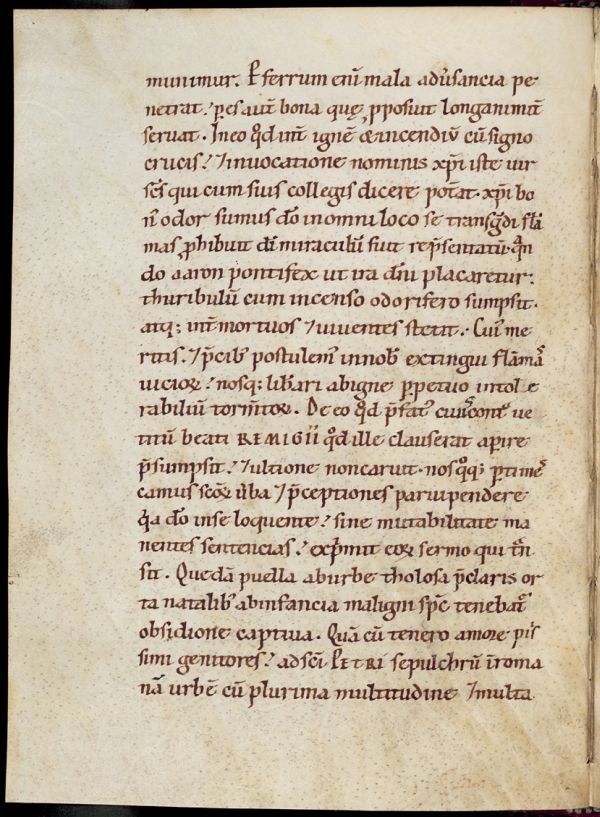 munimur. Et ferrum eni̅ mala adu̕sancia pe
netrat. ꝑ es aut̅ bona quę ꝓposiut longanimit̅
seruat. In eo qd̕ int̅ igne̅ & incendiu̅ cu̅ signo
crucis. ⁊ inuocatione nominis xp̅i iste uir
sc̅s qui cum suis collegis dicere pot̅at. xp̅i bo
n̅ odor sumus d̅o in omni loco se transg̅di fla̅
mas ꝓhibuit di̅ miraculu̅ fuit rep̅sentatu̅. qn̅
do aaron pontifex ut ira d̅ni placaretur.
thuribulu̅ cum incenso odorifero sumpsit.
atq; int̅ mortuos ⁊ uiuentes stetit. Cui̕ me
ritis. ⁊ p̅cib̕ postulem̕ in nob̕ extingui fla̅ma̅
uicioꝝ. nosq; lib̕ari ab igne ꝑpetuo intole
rabiliu̅ torm̅toꝝ. De eo qd̕ p̅fat̕ cont̅ ue
titu̅ beati REMIGII qd̕ ille clauserat aꝑire
p̅sumpsit. ⁊ ultione non caruit. nos qq; ꝑtime̕
camus sc̅oꝝ u̅ba ⁊ p̅ceptiones paruipendere
q̅a d̅o in se loquente. sine mutabilitate ma
nentes sentencias. exp̅mit eoꝝ sermo qui t̅n
sit. Queda̅ puella ab urbe tholosa p̅claris or
ta natalib̕ ab infancia maligni sp̅c teneba̅t̕
obsidione captiua. Qua̅ cu̅ tenero amore piis
simi genitores. ad sc̅i PETRI sepulchru̅ i̅ roma
na̅ urbe̅ cu̅ plurima multitudine ⁊ multa